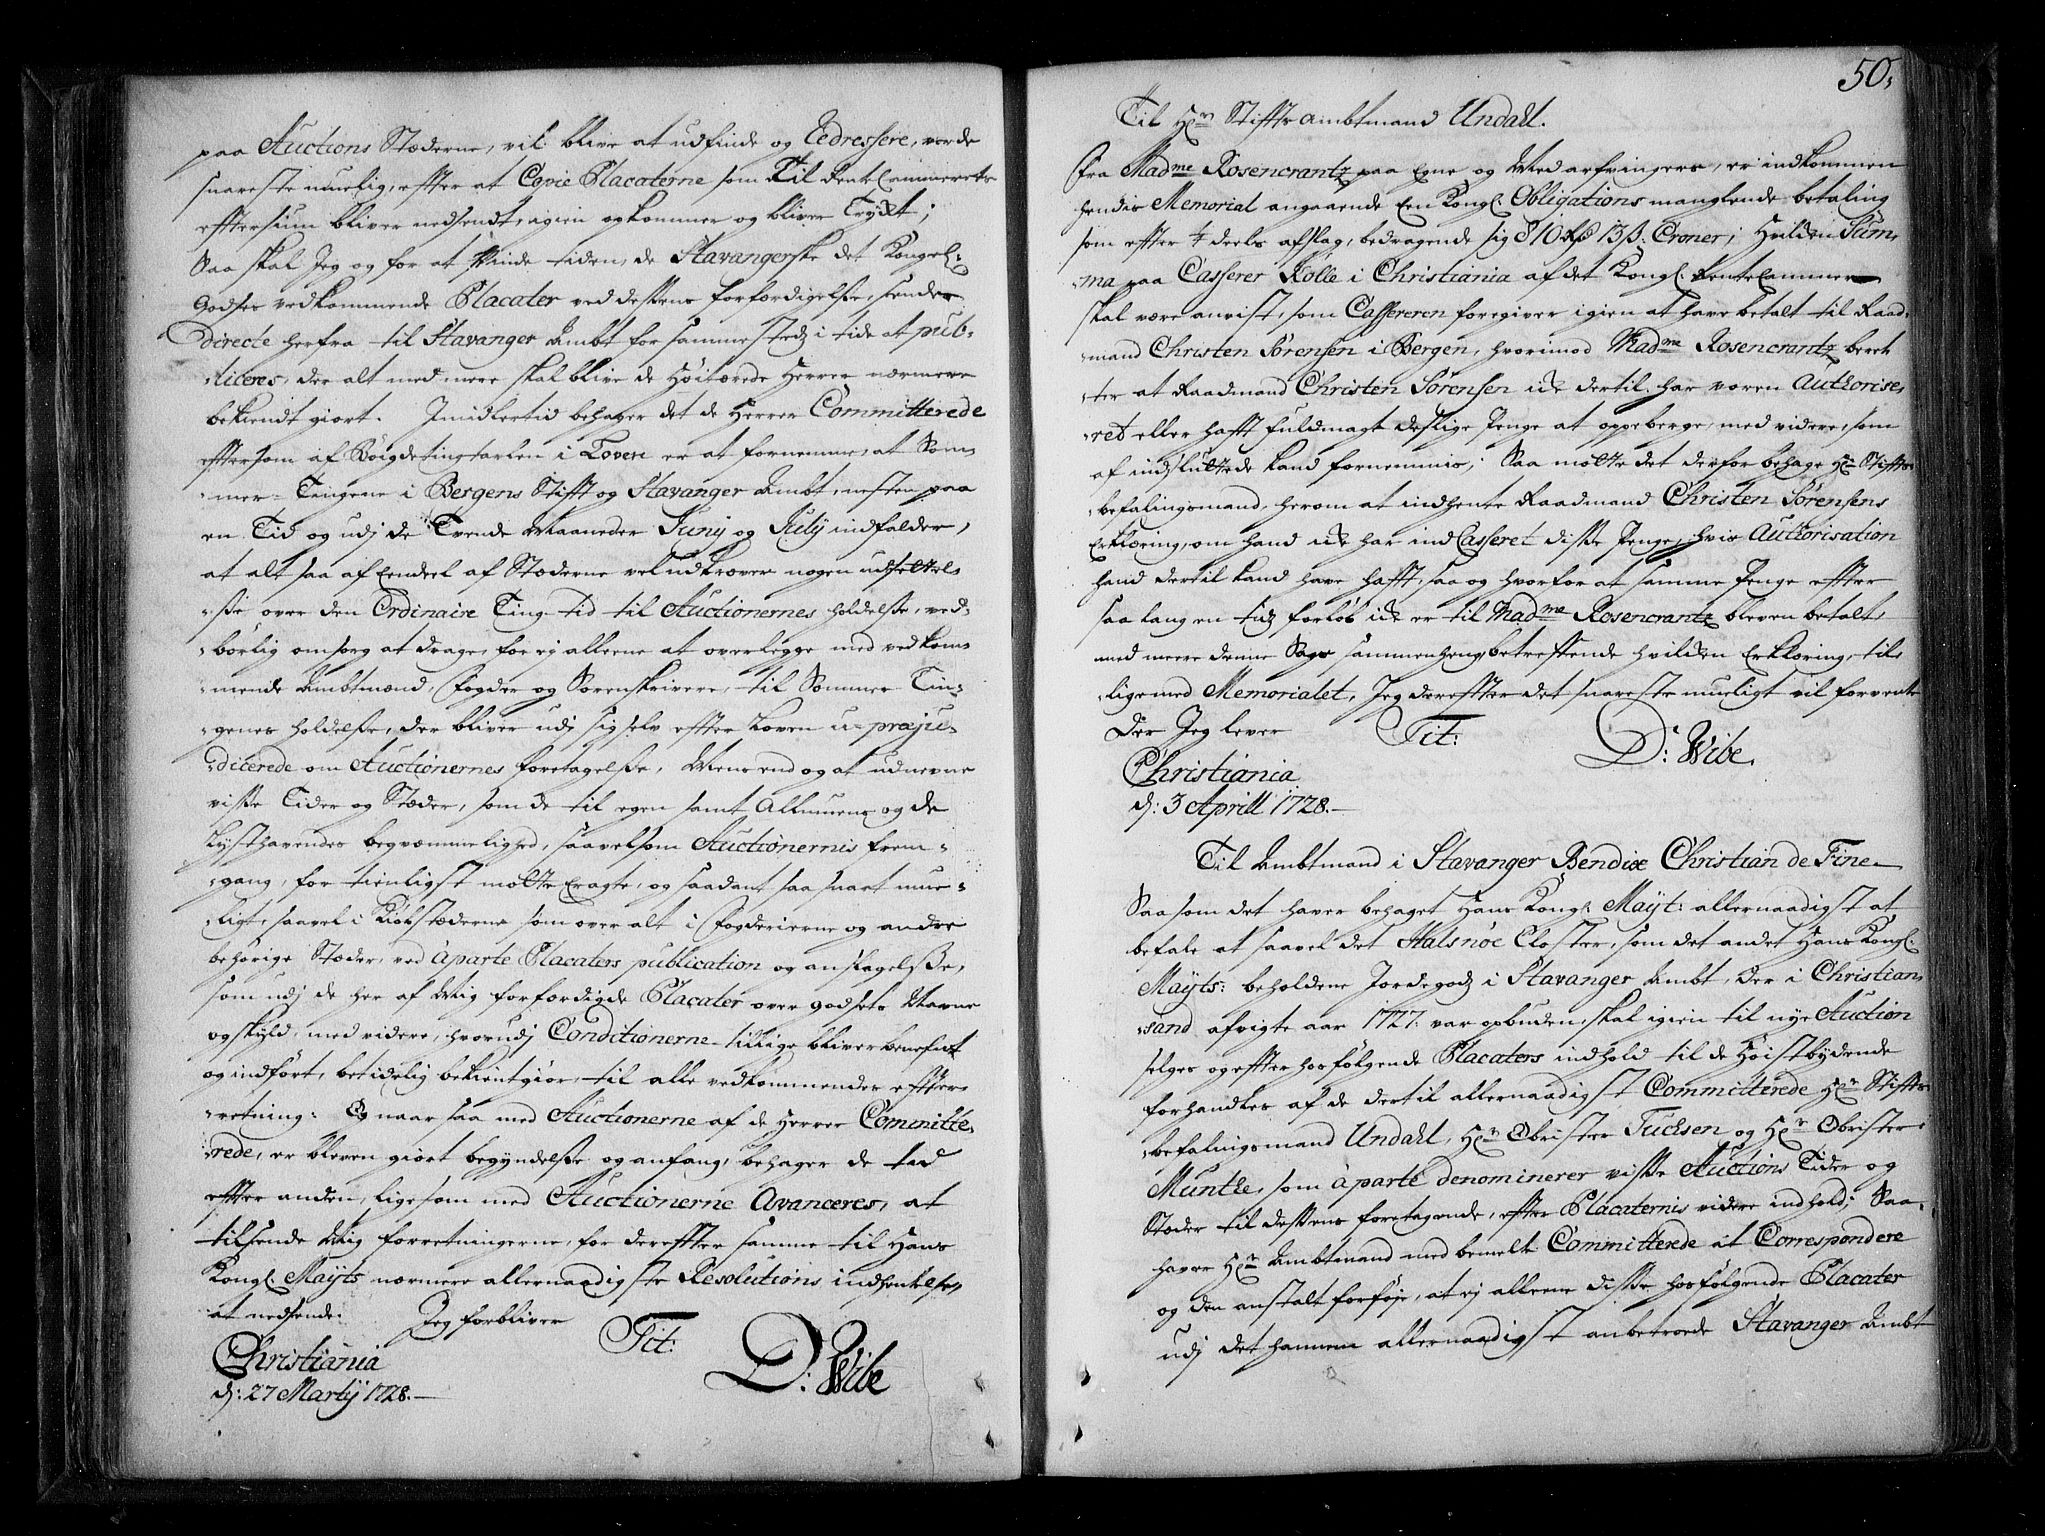 paa Auctions Stæderne, vil blive at udfinde og Redressere, værde
snareste muelig, efter at Copie Placaterne som til Rente Cammerets
efftersiun bliver nedsendt, igien opkommer og bliver Tryxt;
Saa skal Jeg og for at Vinde tiden, de Stavangerske det Kongel:
Godses vedkommende Placater ved dessens forfærdigelse, sender
directe herfra til Stavanger Ambt for sammestedz i tide at pub-
-liceres, der alt med mere skal blive de Høitærede Herrer nærmere
bekiendt giort. Imidlertid behager det de Herrer Committerede
eftersom af Böigdetingtaxten i Loven er at fornemme, at Som-
-mer-Tingene i Bergens Stifft og Stavanger Ambt, nesten paa
en Tid og udj de Tvende Maaneder Junij og Julij indfalder,
at alt saa af Eendeel af Stæderne vel udkræver nogen udsettel-
-se over den Ordinaire Ting-tid til Auctionernes holdelse, ved-
-børlig omsorg at drage, for ej alleene at overlegge med vedkom-
-mende Ambtmænd, Fogder og Sorenskrivere, til Sommer Tin-
-genes holdelse, der bliver udj sig selv effter Loven u-præju-
-dicerede om Auctionernes foretagelse, Mens end og at udnevne
visse Tider og Stæder, som de til egen samt Allmuens og de
Lysthavendes begvæmmelighed, saavelsom Auctionernis frem-
-gang, for tienligst motte Eragte, og saadant saa snart mue-
-ligt, saavel i Kiøbstæderne som over alt i Fogderierne og andre
behørige Stæder, ved àparte Placaters publication og anslagelse,
som udj de her af Mig forfærdigde Placater over godsets Navne
og skyld, med videre, hvorudj Conditionerne tillige bliver benefnt
og indført, betidelig bekientgiør, til alle vedkommendes effter-
-retning: Og naar saa med Auctionerne af de Herrer Committe-
-rede, er bleven giort begyndelse og anfang, behager de tid
effter anden, ligesom med Auctionerne Avanceres, at
tilsende Mig forretningerne, for dereffter samme til Hans
Kongl: Mayts nærmere allernaadigste Resolutions indhentelse,
at nedsende. Jeg forbliver
Tit:
D: Wibe
Christiania
d: 27 Martij 1728.
50.
Til Hr Stiffts ambtmand Undahl.
Fra Madme Rosencrantz paa Egne og Medarfvingers, er indkommen
hendis Memorial angaaende Een Kongl: Obligations manglende betaling
som effter ¼ deels afslag, bedragende sig 810 rdr 13 ß: Croner; Hvilken Sum-
-ma paa Casserer Rolle i Christiania af det Kongl: Rente Cammer
skal være anvist, som Cassereren foregiver igien at have betalt til Raad-
-mand Christen Sørensen i Bergen, hvorimod Madme Rosencrantz beret-
-ter at Raadmand Christen Sørensen icke dertil har været Authorise-
-ret eller hafft fuldmagt deslige Penge at oppeberge, med videre, som
af indsluttede kand fornemmis; Saa motte det derfor behage Hr Stiffts-
-befalingsmand, herom at indhente Raadmand Christen Sørensens
Erklæring, om hand icke har ind Casseret disse Penge, hvis Authorisation
hand dertil kand have hafft, saa og hvorfor at samme Penge effter
saa lang en tidz forløb icke er til Madme Rosencrantz bleven betalt,
med meere denne Sags sammenheng betreffende hvilken Erklæring, til-
-lige med Memorialet, Jeg dereffter det snareste mueligt vil forvente
Der Jeg lever
Tit:
D: Wibe.
Christiania
d: 3 Aprill 1728.
Til Ambtmand i Stavanger Bendix Christian de Fine
Saasom det haver behaget Hans Kongl: Mayt: allernaadigst at
befale at saavel det Halsnöe Closter, som det andet Hans Kongl:
Mayts: beholdene Jordegodz i Stavanger Ambt, Der i Christian-
-sand afvigte aar 1727. var opbuden, skal igien til nye Auction
selges og effter hosfølgende Placaters indhold til de Høistbydende
forhandles af de dertil allernaadigst Committerede Hr Stiffts-
-befalingsmand Undahl, Hr Obrister Tuchsen og Hr Obrister
Munthe, som àparte denominerer visse Auctions Tider og
Stæder til dessens foretagende, effter Placaternis videre indhold; Saa
haver Hr Ambtmand med bemelte Committerede at Correspondere
og den anstalt forføje, at ej alleene disse hosfølgende Placater
udj det hannem allernaadigst anbetroede Stavanger Ambt